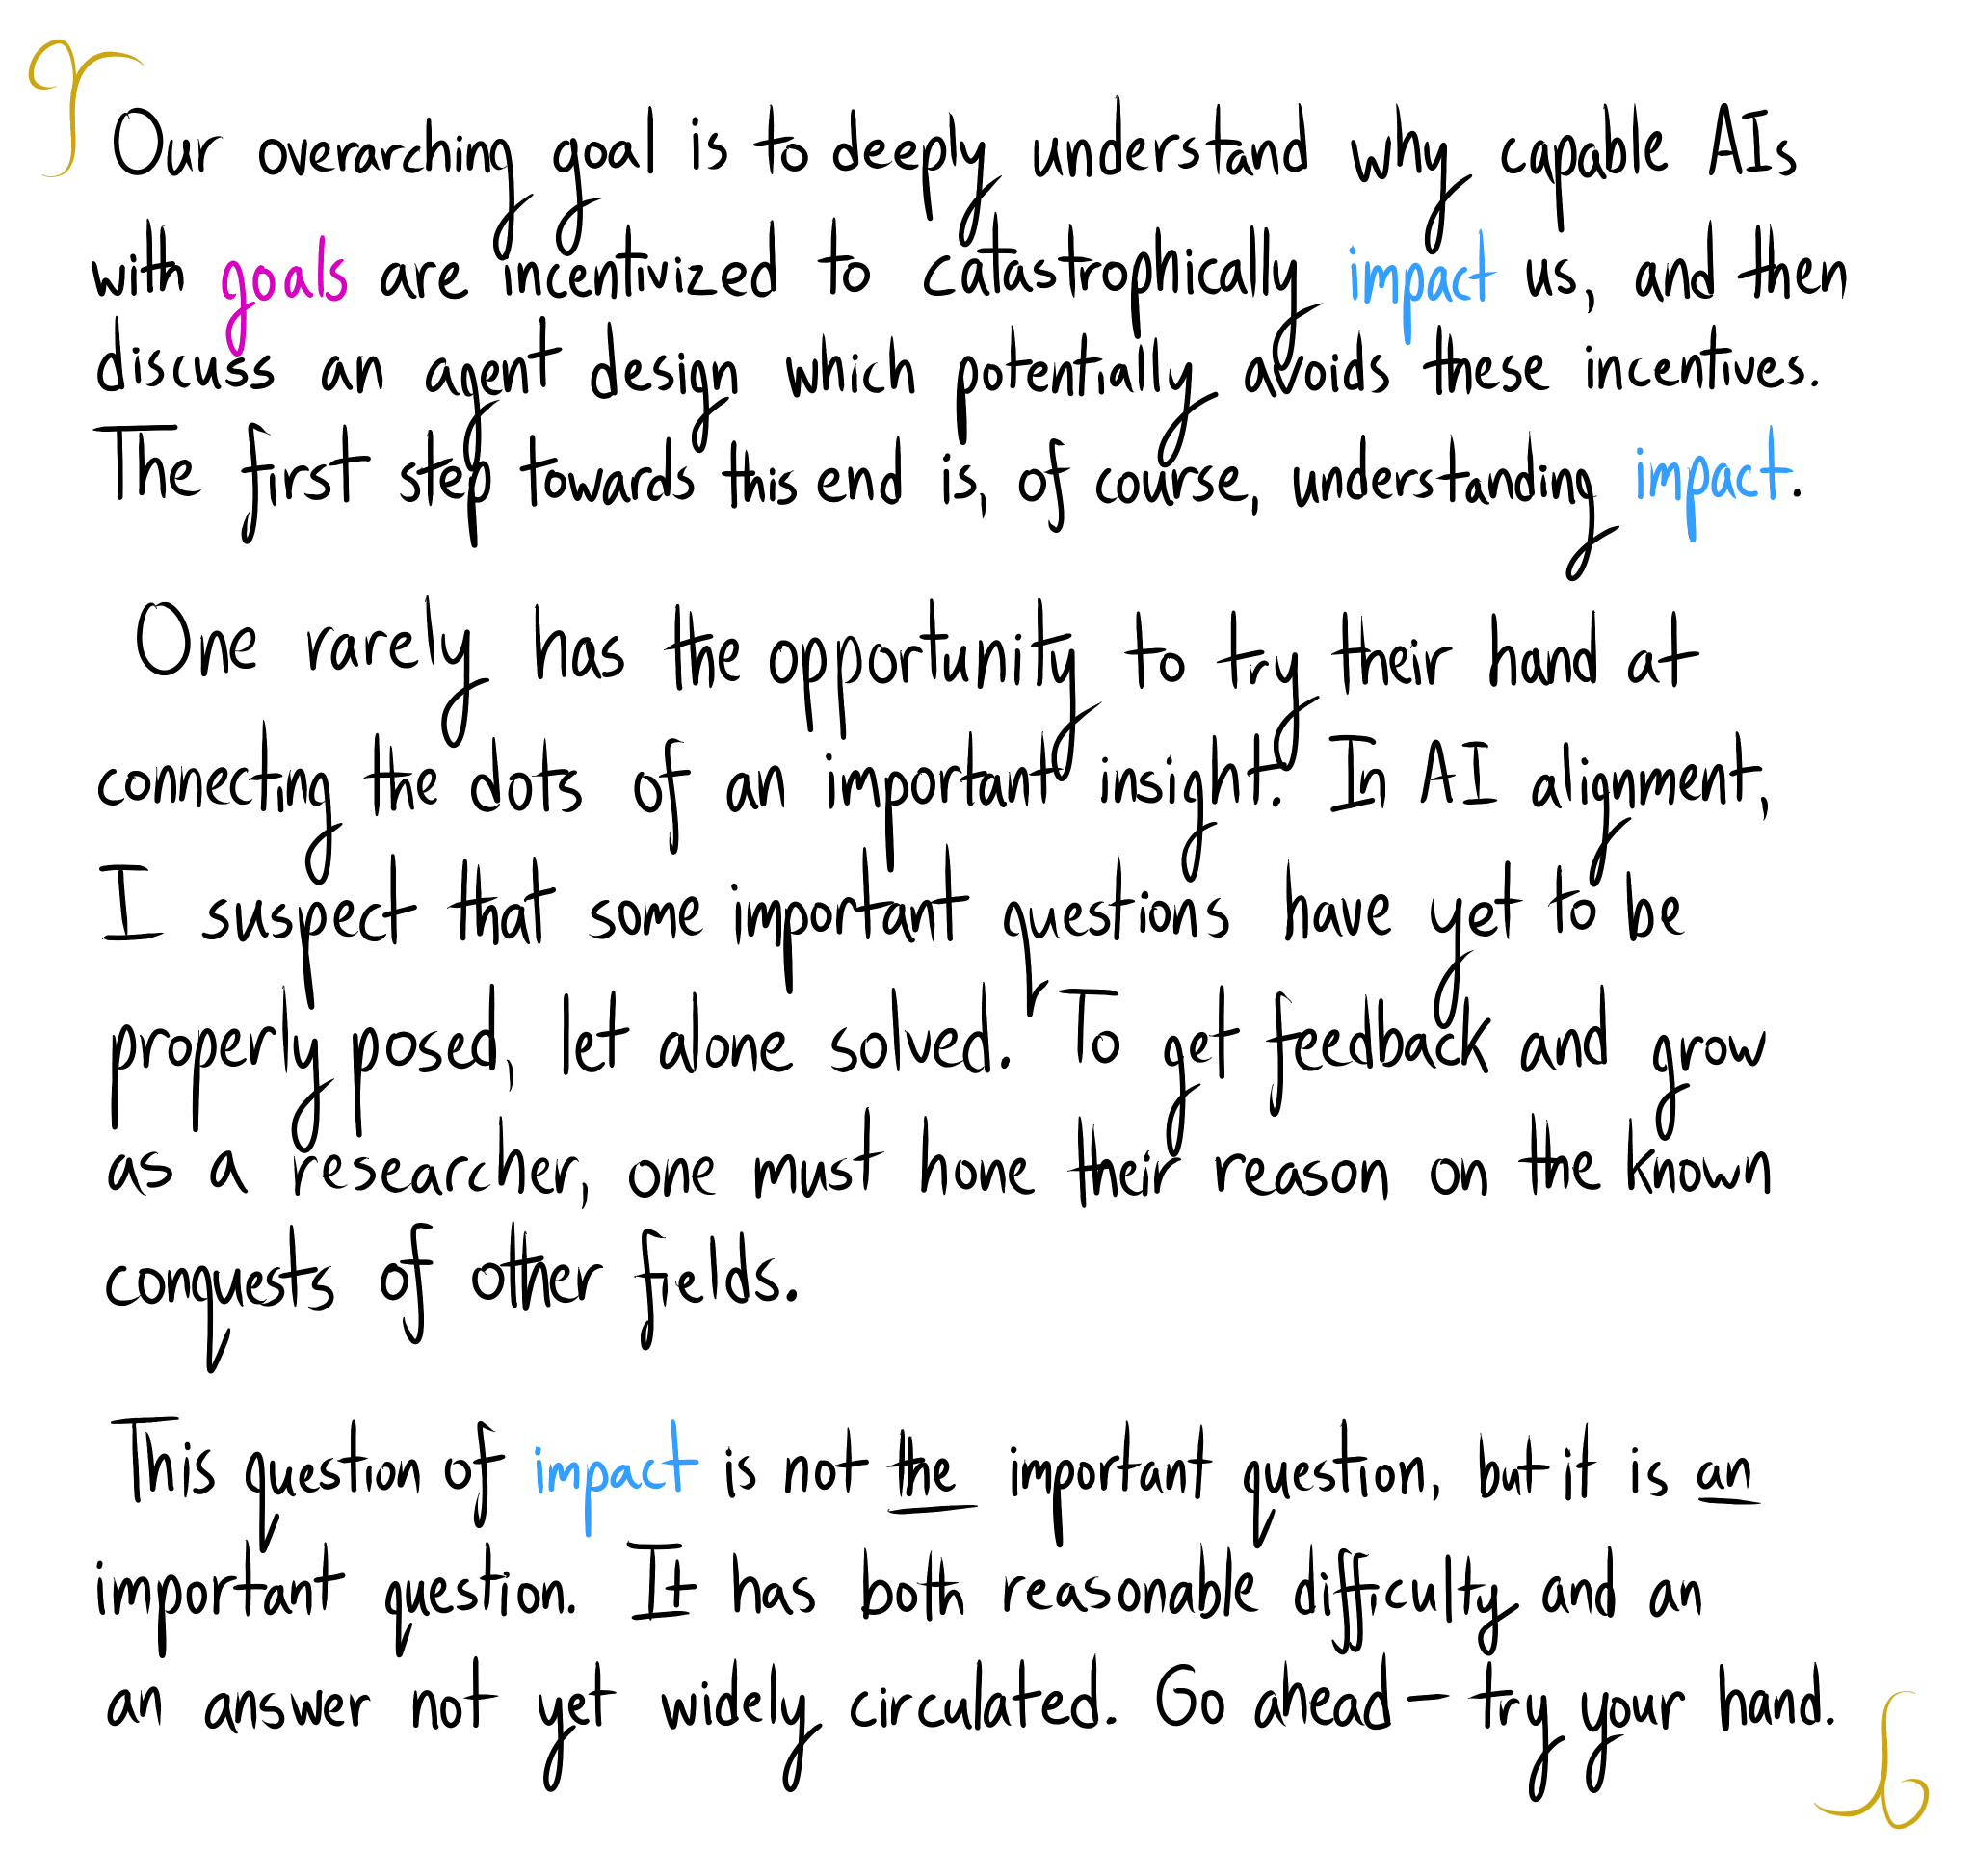 Our overarching goal is to deeply understand why capable AIs
with goals are incentivized to catastrophically impact us, and then
discuss an agent design which potentially avoids these incentives.
The first step towards this end is, of course, understanding impact.
One rarely has the opportunity to try their hand at
connecting the dots of an important insight. In AI alignment,
I suspect that some important questions have yet to be
properly posed, let alone solved. To get feedback and grow
as a researcher, one must hone their reason on the known
conquests of other fields.
This question of impact is not the important question, but it is an
important question. It has both reasonable difficulty and an
an answer not yet widely circulated. Go ahead – try your hand.